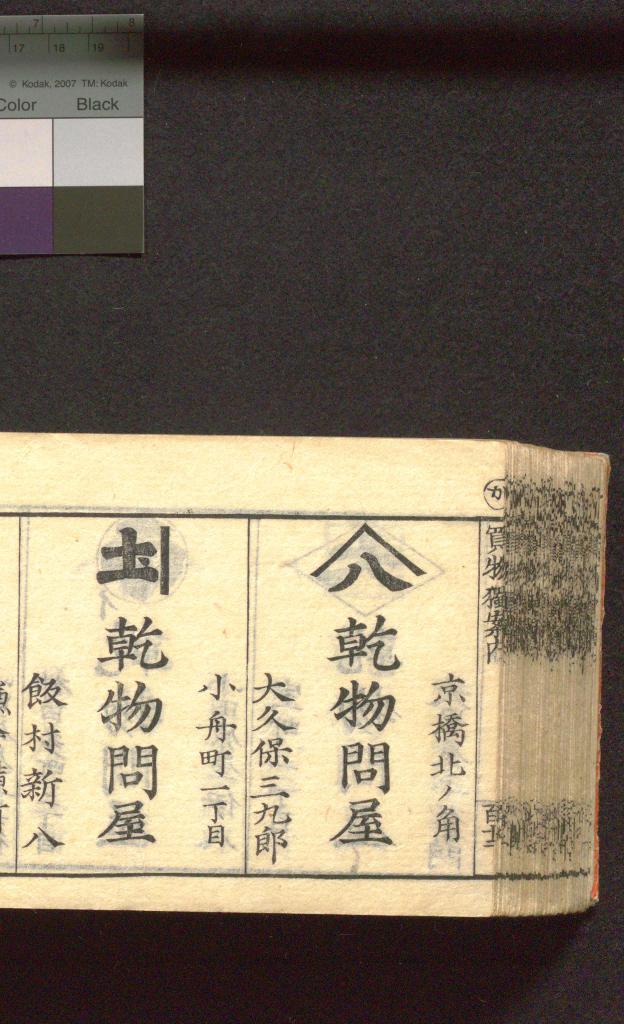 7 8
17 18 19
© Kodak, 2007 TM: Kodak
Color Black
か
買物獨案内
百十二
八
京橋北ノ角
乾物問屋
大久保三九郎
小舟町一丁目
乾物問屋
飯村新八